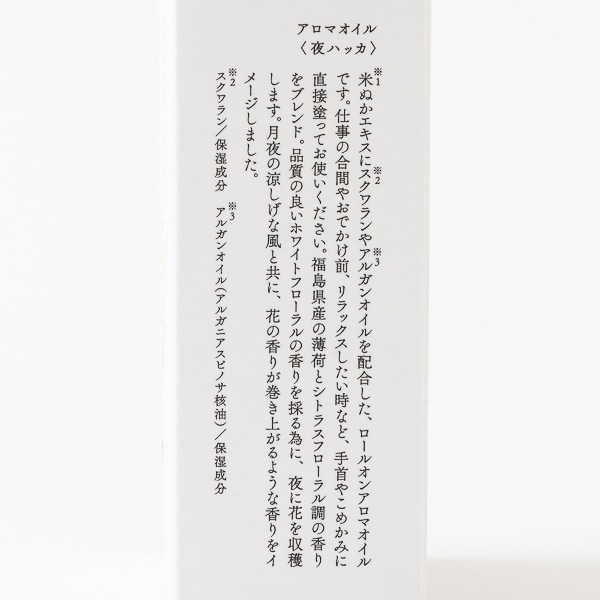 アロマオイル
〈夜ハッカ〉
※1米ぬかエキスに※2スクワランや※3アルガンオイルを配合した、ロールオンアロマオイル
です。仕事の合間やおでかけ前、リラックスしたい時など、手首やこめかみに
直接塗ってお使いください。福島県産の薄荷とシトラスフローラル調の香り
をブレンド。品質の良いホワイトフローラルの香りを採る為に、夜に花を収穫
します。月夜の涼しげな風と共に、花の香りが巻き上がるような香りをイ
メージしました。
※2スクワラン／保湿成分 ※3アルガンオイル（アルガニアスピノサ核油）／保湿成分